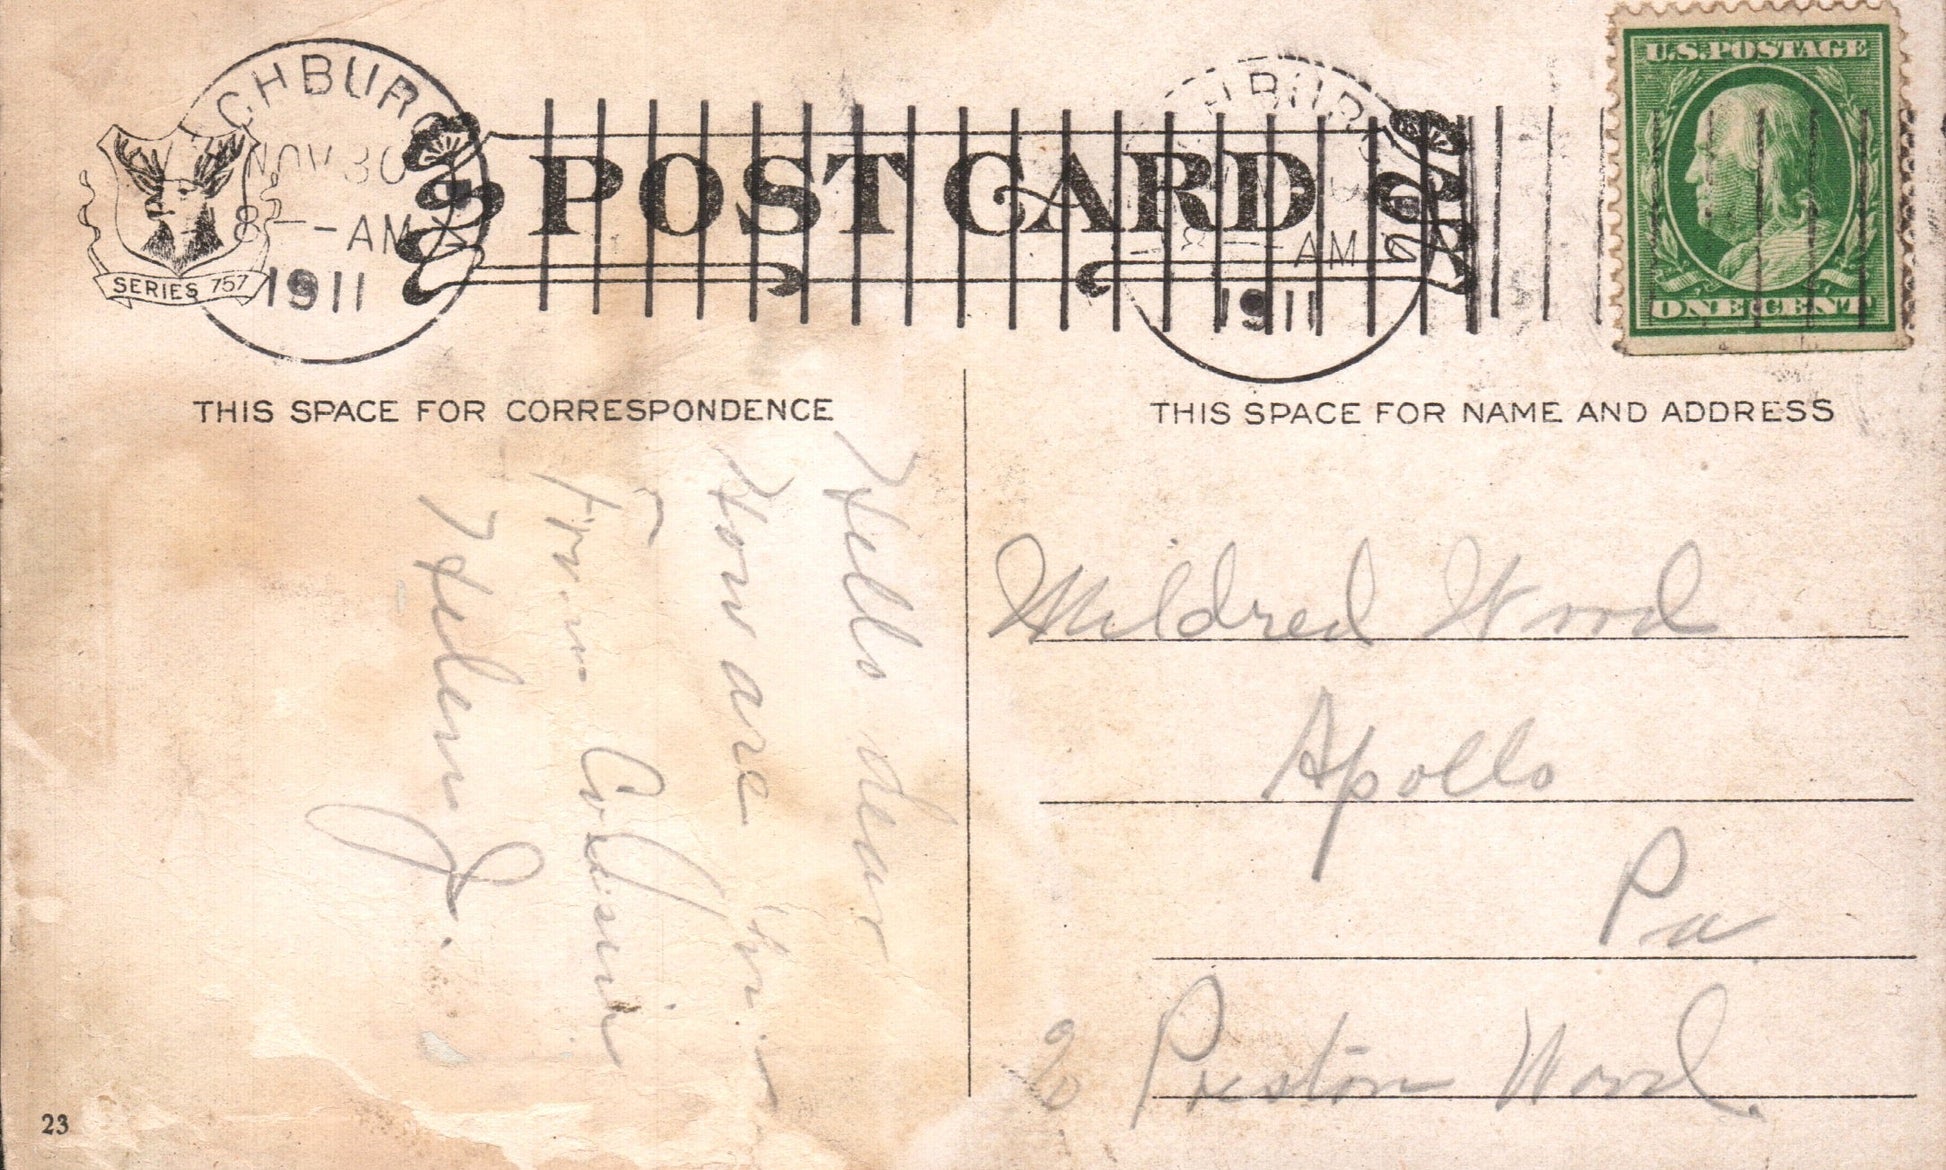 CHBURG
NOV 30
8 -- AM
1911
SERIES 757
POST CARD
HBURG
8 -- AM
1911
U.S. POSTAGE
ONE CENT
THIS SPACE FOR CORRESPONDENCE
Hello dear
How are
From Cousin
Helen J.
23
THIS SPACE FOR NAME AND ADDRESS
Mildred Wood
Apollo
Pa
% Preston Wood.